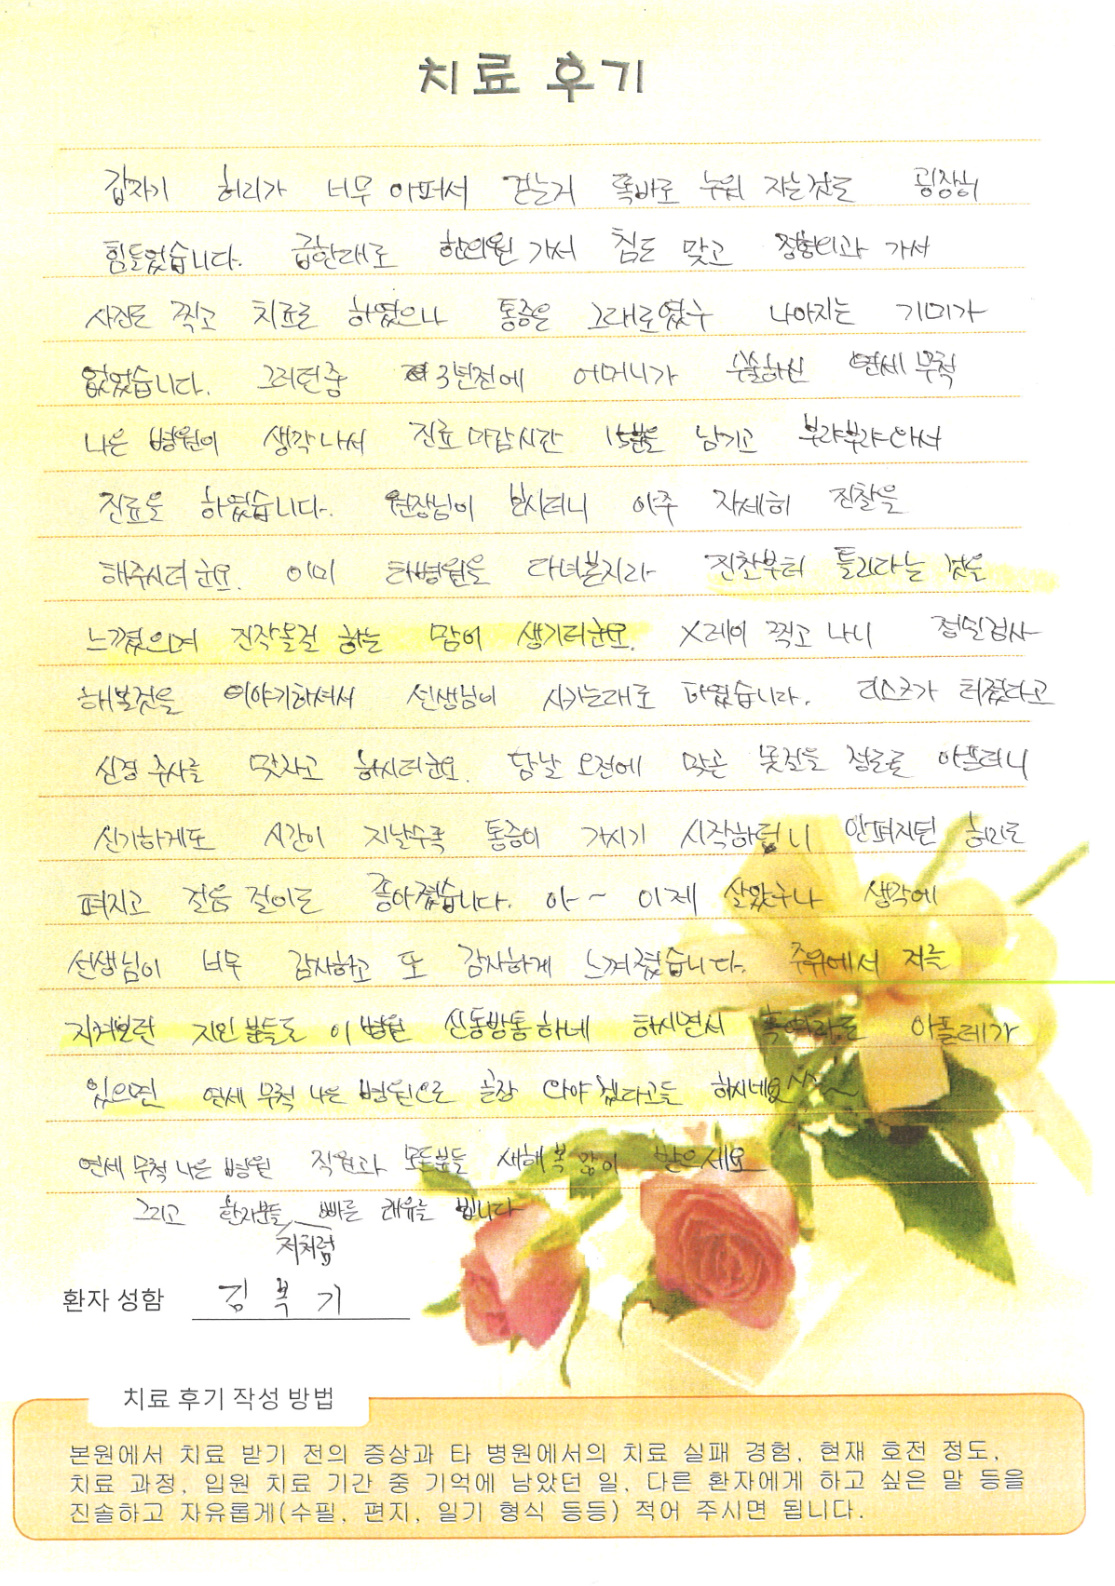 치료 후기
갑자기 허리가 너무 아퍼서 걷는거 똑바로 누워 자는것도 굉장히
힘들었습니다. 급한대로 한의원 가서 침도 맞고 정형외과 가서
사진도 찍고 치료를 하였으나 통증은 그대로였구 나아지는 기미가
없었습니다. 그러던중 3년전에 어머니가 수술하신 연세 무척
나은 병원이 생각나서 진료 마감시간 15분을 남기고 부랴부랴 와서
진료를 하였습니다. 원장님이 보시더니 아주 자세히 진찰을
해주시더군요. 이미 타병원을 다녀본지라 진찰부터 틀리다는 것을
느꼈으며 진작올걸 하는 맘이 생기더군요. X레이 찍고 나니 정밀검사
해볼것을 이야기하셔서 선생님이 시키는대로 하였습니다. 디스크가 터졌다고
신경 주사를 맞자고 하시더군요. 담날 오전에 맞곤 몇일을 점으로 아플더니
신기하게도 시간이 지날수록 통증이 가시기 시작하덥니 안펴지던 허리도
펴지고 걸음 걸이도 좋아졌습니다. 아~ 이제 살았구나 생각에
선생님이 너무 감사하고 또 감사하게 느껴졌습니다. 주위에서 저를
지켜보던 지인분들도 이 병원 신통방통하네 하시면서 혹여라도 아플레가
있으면 연세 무척 나은 병원으로 곧장 와야 겠다고들 하시네요^^~
연세 무척 나은 병원 직원과 모든분들 새해 복 많이 받으세요
그리고 환자분들 저처럼 빠른 쾌유를 빕니다
환자 성함 김 복 기
치료 후기 작성 방법
본원에서 치료 받기 전의 증상과 타 병원에서의 치료 실패 경험, 현재 호전 정도,
치료 과정, 입원 치료 기간 중 기억에 남았던 일, 다른 환자에게 하고 싶은 말 등을
진솔하고 자유롭게(수필, 편지, 일기 형식 등등) 적어 주시면 됩니다.